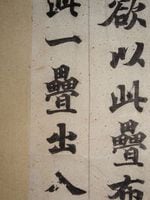 欲以此疊布
此一疊出入